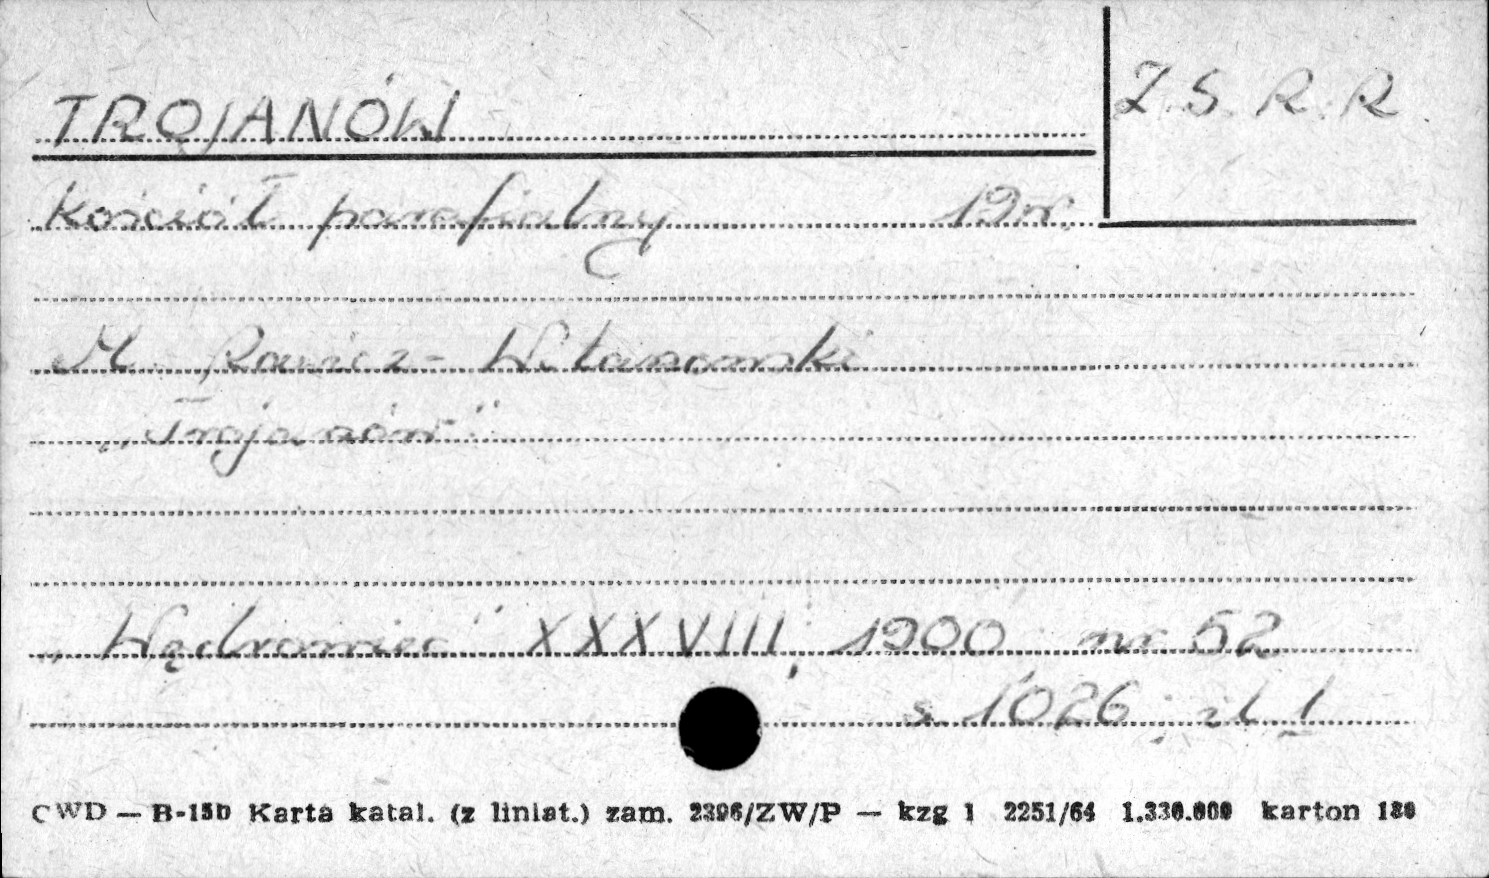 TROJANÓW
Z.S.R.R.
Kościół parafialny 19 w.
M. Rawicz-Witanowski
„Trojanów"
„Wędrowiec" XXXVIII, 1900 nr 52
s. 1026; il. 1
CWD — B-15b Karta katal. (z liniat.) zam. 2396/ZW/P — kzg 1 2251/64 1.330.000 karton 180